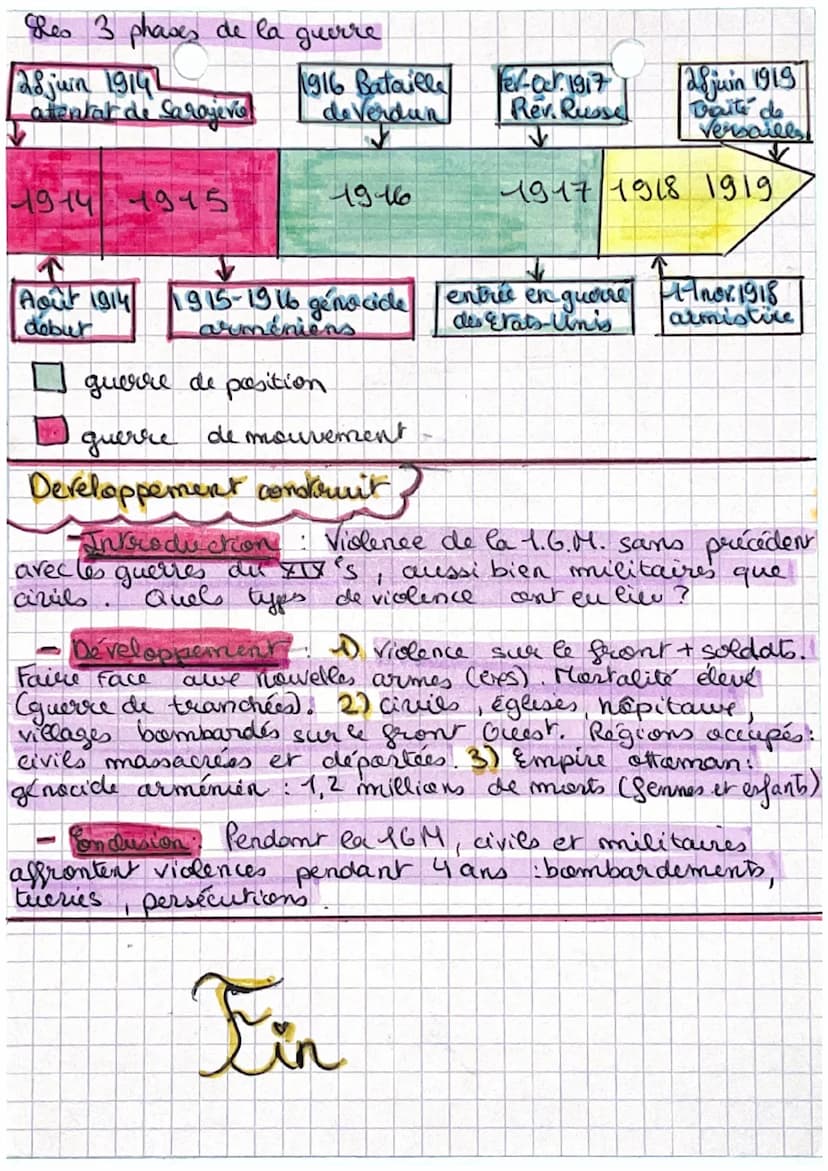 Les 3 phases de la guerre
28 juin 1914
attentat de Sarajevo
1916 Bataille
de Verdun
Fev-Oct.1917
Rév. Russe
28 juin 1919
Traité de
Versailles
1914
1915
1916
1917
1918
1919
Août 1914
début
1915-1916 génocide
arméniens
entrée en guerre
des Etats-Unis
11 nov. 1918
armistice
guerre de position
guerre de mouvement
Développement construit
- Introduction : Violence de la 1.G.M. sans précédent
avec les guerres du XIX 's, aussi bien militaires que
civils. Quels types de violence ont eu lieu ?
- Développement : 1) Violence sur le front + soldats.
Faire face aux nouvelles armes (exs). Mortalité élevé
(guerre de tranchées). 2) civils, églises, hôpitaux,
villages bombardés sur le front Ouest. Régions occupés:
civils massacrées et départées. 3) Empire ottoman:
génocide arménien : 1,2 millions de morts (femmes et enfants)
- Conclusion: Pendant la 1GM, civils et militaires
affrontent violences pendant 4 ans : bombardements,
tueries, persécutions.
Fin